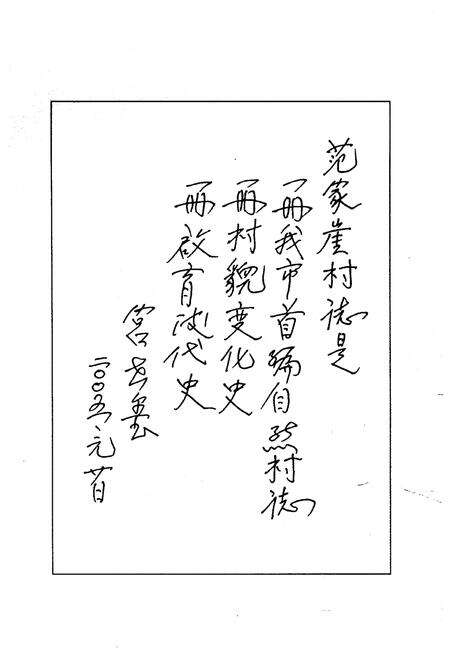 范家崖村誌是
一册我市首编自然村誌
一册村貌变化史
一册啟育後代史
宫
二〇〇五元廿日